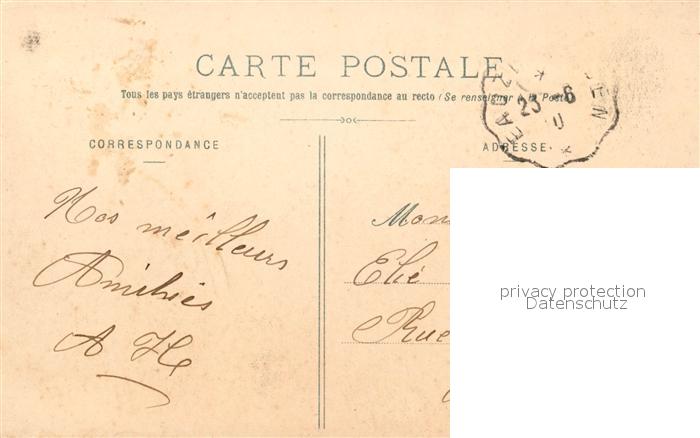 CARTE POSTALE
Tous les pays étrangers n'acceptent pas la correspondance au recto (Se renseigner à la Poste)
23 -6
CORRESPONDANCE
ADRESSE
Nos meilleurs
Amitiés
A H
Mon
Elie
Rue
privacy protection
Datenschutz